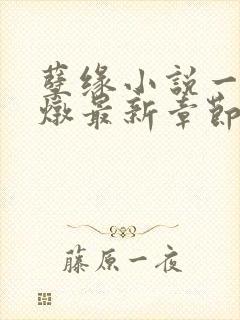 孽缘小説一
燉最新章節
藤原一夜